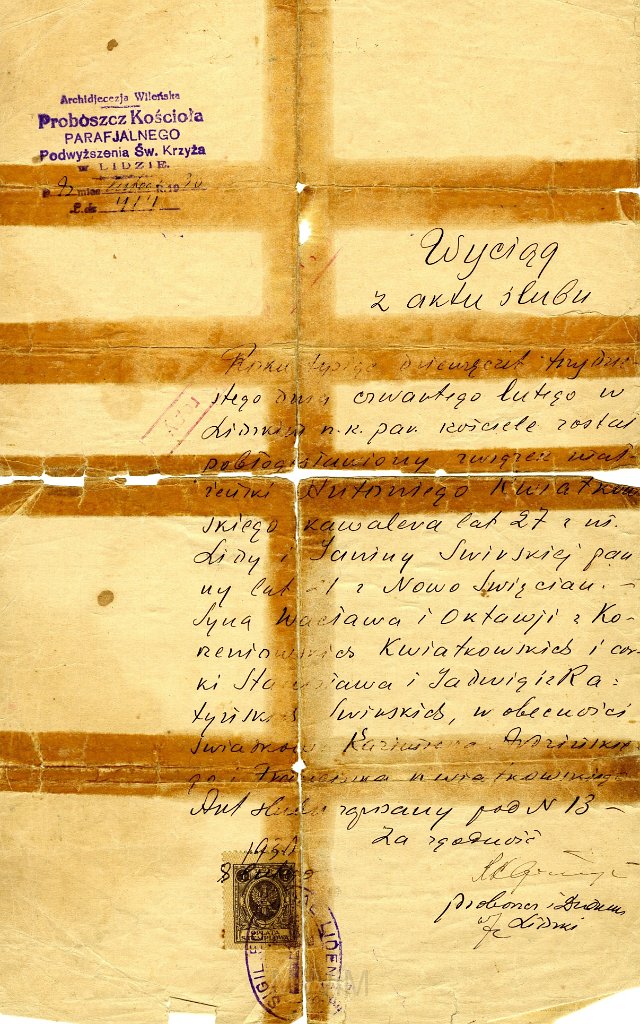 Archidjecezja Wileńska
Proboszcz Kościoła
PARAFJALNEGO
Podwyższenia Św. Krzyża
w LIDZIE.
mies. 19
L. dz.
Wyciąg
z aktu ślubu
Roku tysiąc dziewięćset trzydzie-
stego dnia czwartego lutego w
Lidzkim r.k. par. kościele został
pobłogosławiony związek mał-
żeński Antoniego Kwiatkow-
skiego kawalera lat 27 z m.
Lidy i Janiny Swirskiej pan
ny lat 21 z Nowo Święcian. -
Syna Wacława i Oktawji z Ko-
reniowskich Kwiatkowskich i cór-
ki Stanisława i Jadwigi z Ra-
tyńskich Swirskich, w obecności
świadków Kazimierza
go i Franciszka Kwiatkowskiego
Akt ślubu zapisany pod N 13 -
Za zgodność
1930
8
proboszcz i Dziekan
Lidzki
OPŁATA
SIGIL LIDEN